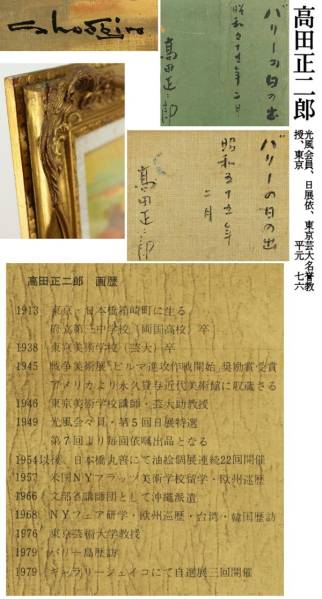 高田正二郎
光風会員、日展依、東京芸大名誉教
授、東京 平元 七六
バリーの日の出
昭和五十五年二月
高田正二郎
バリーの日の出
昭和五十五年
二月
高田正二郎
高田正二郎 画歴
1913 東京・日本橋箱崎町に生る
府立第三中学校（両国高校）卒
1938 東京美術学校（芸大）卒
1945 戦争美術展「ビルマ進攻作戦開始」奨励賞受賞
アメリカより永久貸与近代美術館に収蔵さる
1946 東京美術学校講師・芸大助教授
1949 光風会々員・第5回日展特選
第7回より毎回依嘱出品となる
1954以後、日本橋丸善にて油絵個展連続22回開催
1957 米国NYブラッツ美術学校留学・欧州巡歴
1966 文部省講師団として沖縄派遣
1968 NYフェア研学・欧州巡歴・台湾・韓国歴訪
1976 東京芸術大学教授
1979 バリー島歴訪
1979 ギャラリージェイコにて自選展三回開催